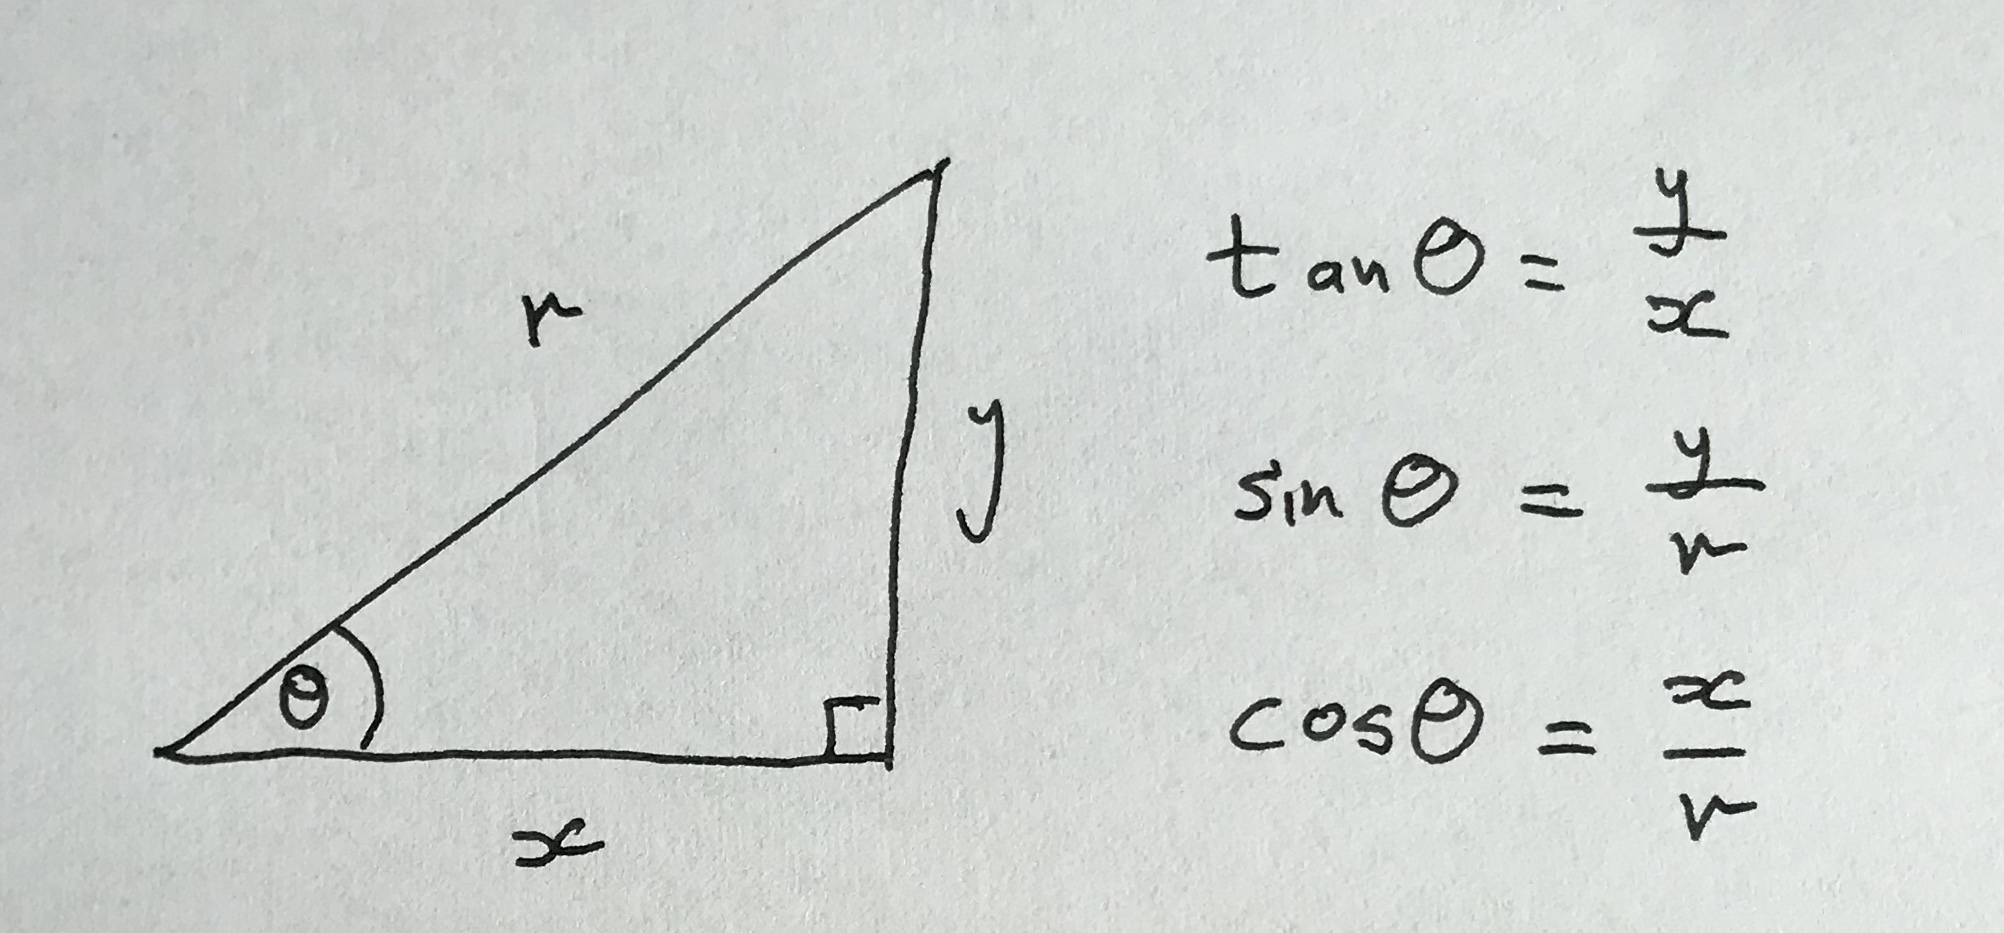 r
y
θ
x
tan θ = y/x
sin θ = y/r
cos θ = x/r